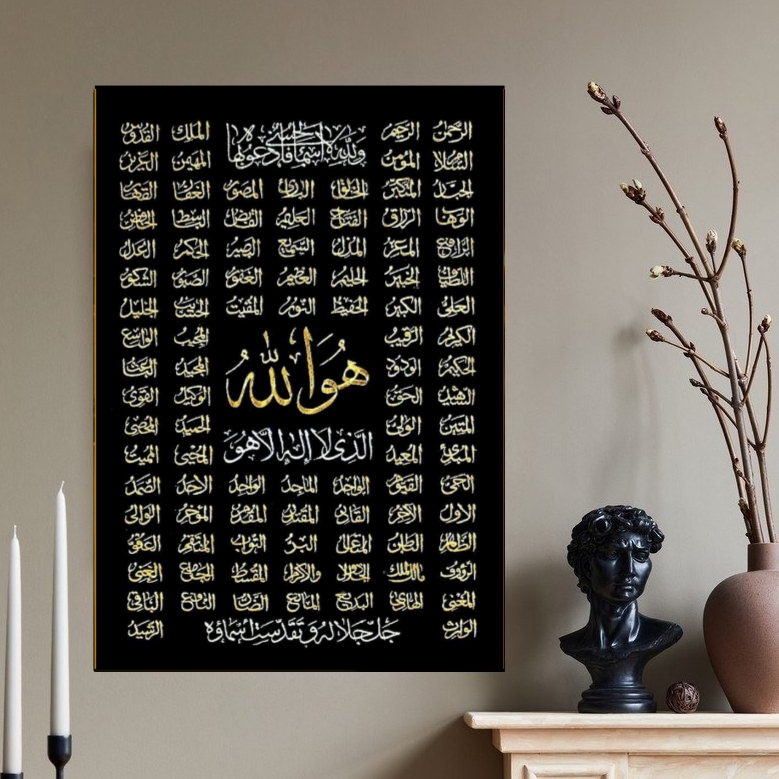 الرحمن الرحيم ولله الأسماء الحسنى فادعوه بها الملك القدوس
السلام المؤمن المهيمن العزيز
الجبار المتكبر الخالق البارئ المصور الغفار القهار
الوهاب الرزاق الفتاح العليم القابض الباسط الخافض
الرافع المعز المذل السميع البصير الحكم العدل
اللطيف الخبير الحليم العظيم الغفور الصبور الشكور
العلي الكبير الحفيظ النور المقيت الحسيب الجليل
الكريم الرقيب المجيب الواسع
الحكيم الودود المجيد الباعث
هو الله
الشهيد الحق الوكيل القوي
المتين الولي الحميد المحصي
الذي لا إله إلا هو
المبدئ المعيد المحيي المميت
الحي القيوم الواجد الماجد الواحد الاحد الصمد
الاول الآخر القادر المقتدر المقدم المؤخر الوالي
الظاهر الباطن المتعال البر التواب المنتقم العفو
الرؤوف مالك الملك ذو الجلال والاكرام المقسط الجامع الغني
المغني الهادي البديع المانع الضار النافع الباقي
الوارث جل جلاله وتقدست اسماؤه الرشيد